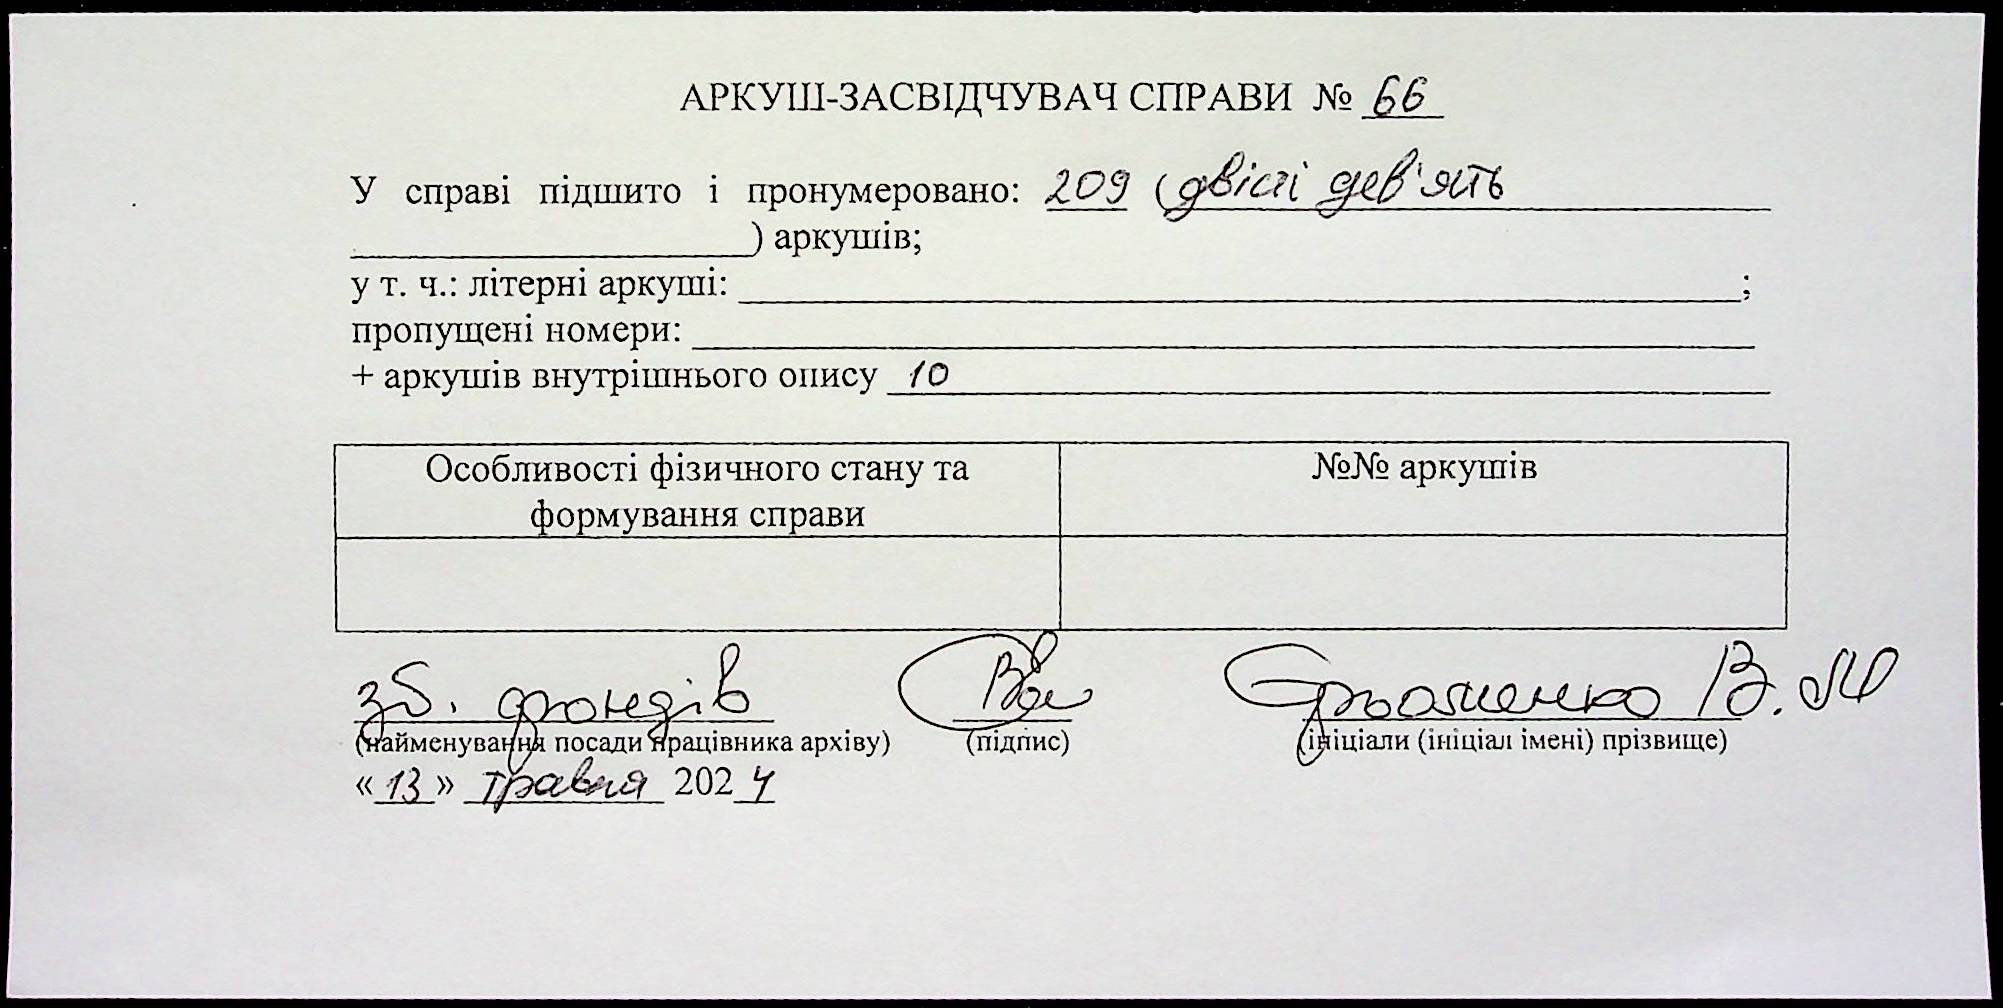 АРКУШ-ЗАСВІДЧУВАЧ СПРАВИ № 66
У справі підшито і пронумеровано: 209 (двісті дев'ять
) аркушів;
у т. ч.: літерні аркуші: ;
пропущені номери:
+ аркушів внутрішнього опису 10
Особливості фізичного стану та формування справи
№№ аркушів
зб. фондів
В. М
(найменування посади працівника архіву) (підпис) (ініціали (ініціал імені) прізвище)
«13» травня 2024